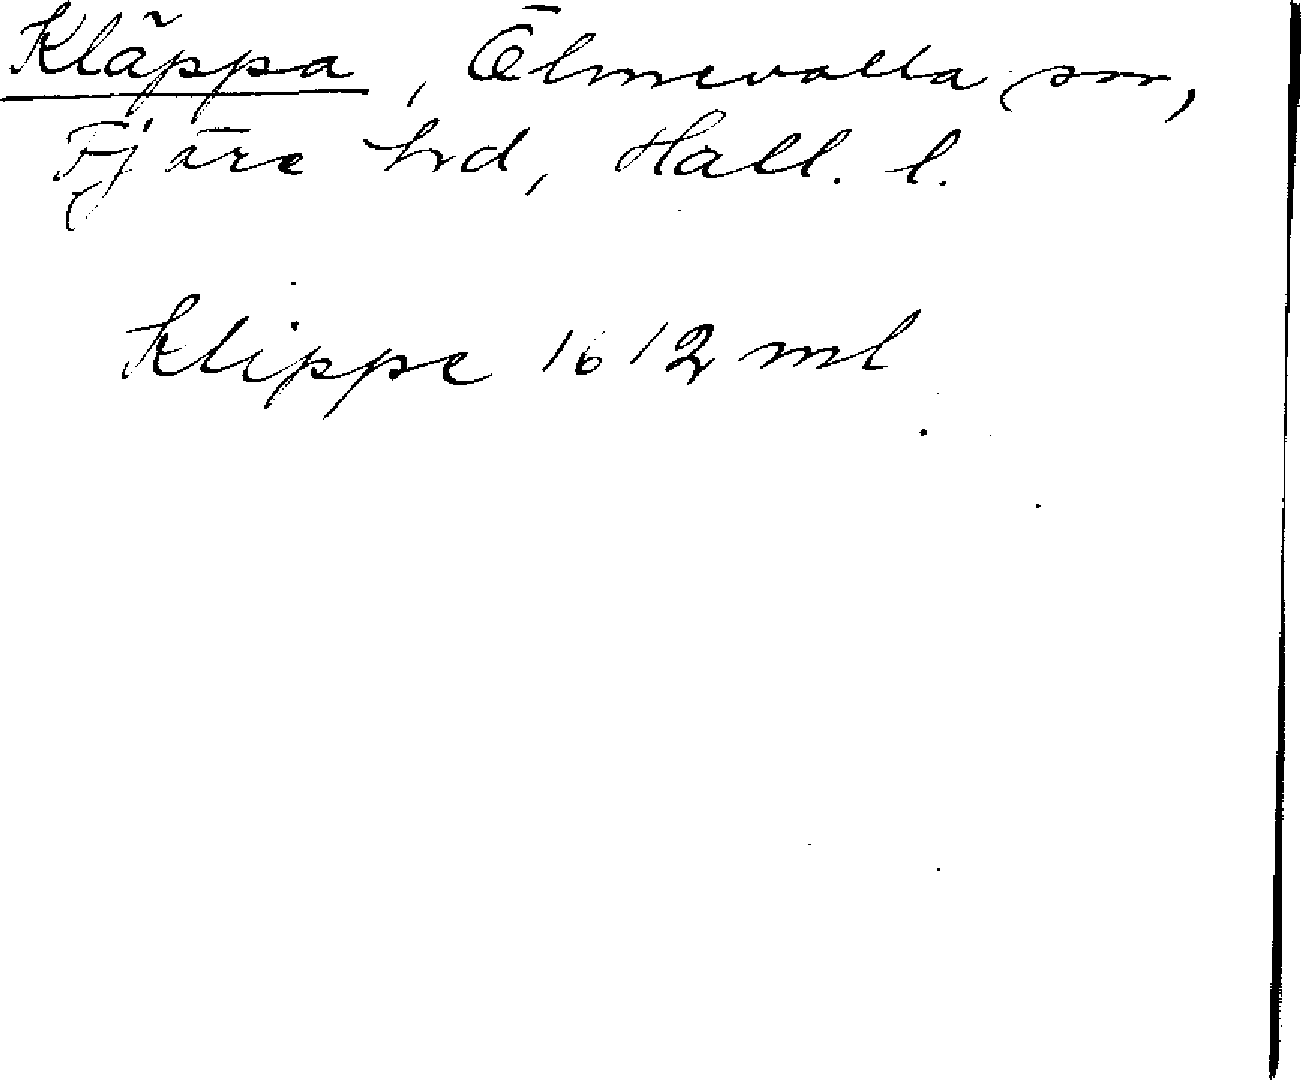 Kläppa, Ölmevalla sn,
Fjäre hd, Hall. l.
Klippe 1612 ml